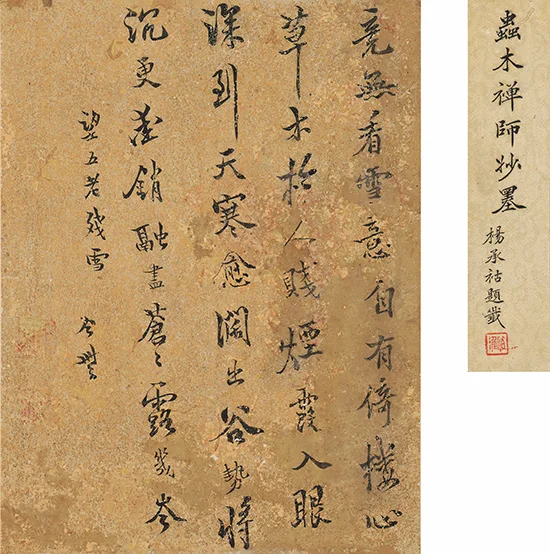 蟲木禪師妙墨
楊承祜題籤
竟無看雪意自有倚樓心
草木於人賤煙霞入眼
深到天寒愈闊出谷勢將
沉更銷融盡蒼々露幾岑
望五老殘雪 今